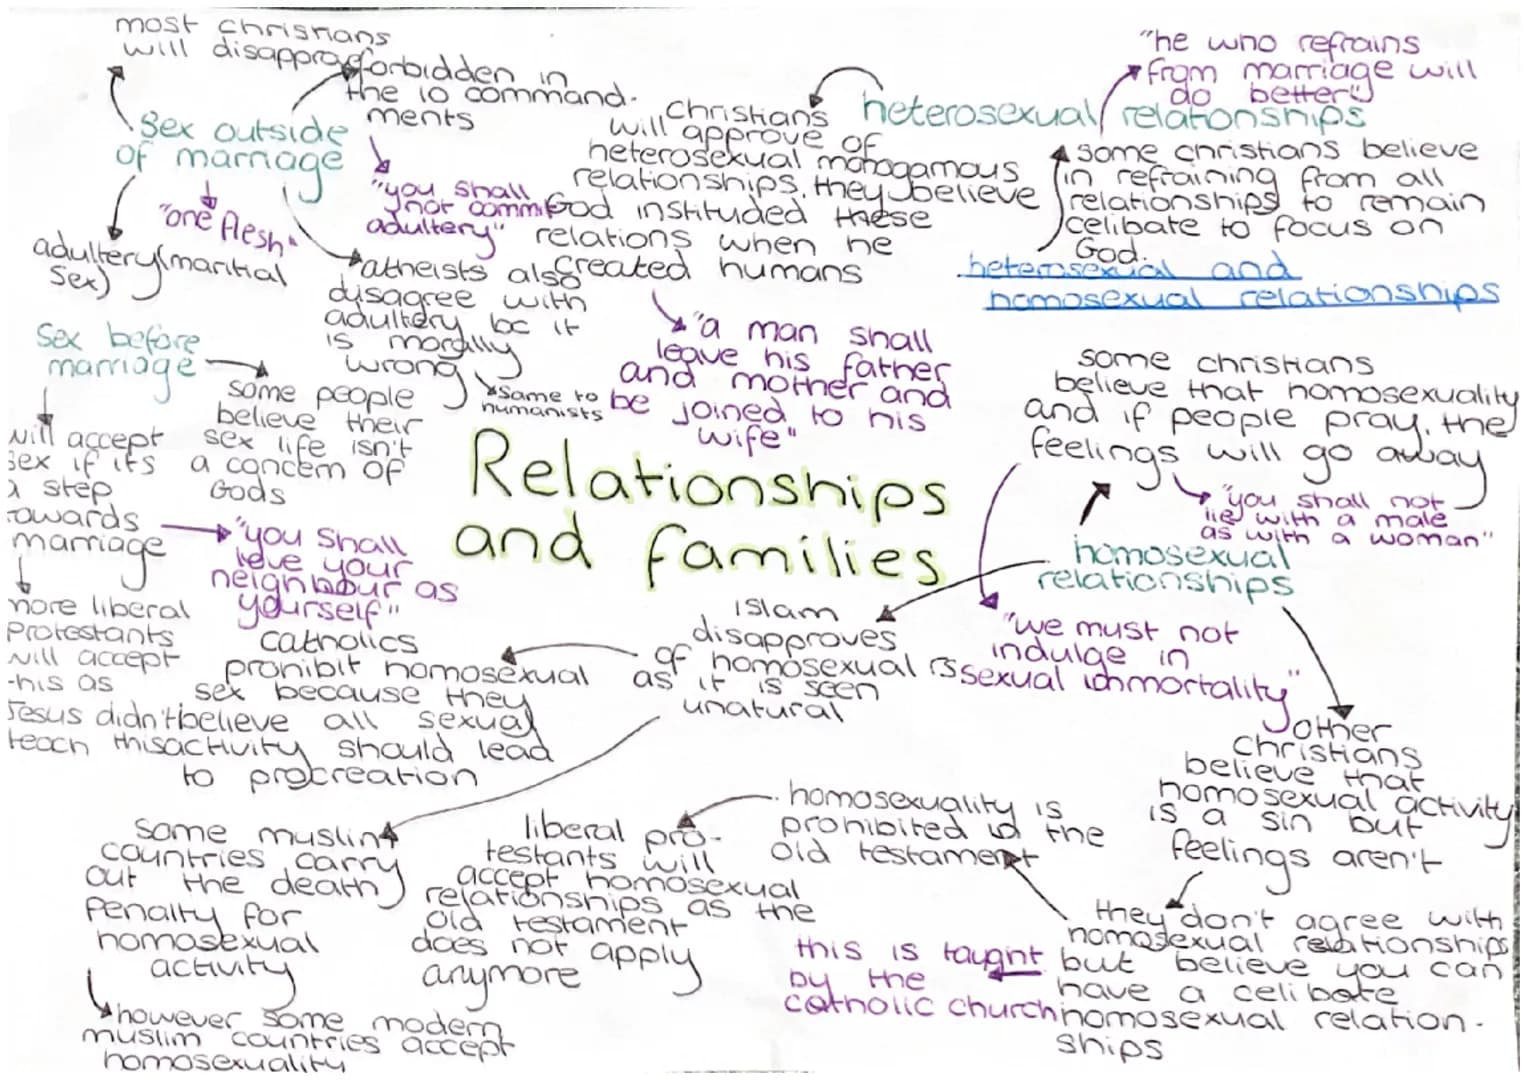 most christians
will disapprove
forbidden in
the 10 command-
ments
"you shall
not commit
adultery"
sex outside
of marriage
"one flesh"
adultery (maritial
sex)
atheists also
disagree with
adultery bc it
is morally
wrong
same to
humanists
sex before
marriage
some people
believe their
sex life isn't
a concern of
Gods
will accept
sex if its
a step
towards
marriage
"you shall
love your
neighbour as
yourself"
more liberal
protestants
will accept
this as
Jesus didn't
teach this
heterosexual relationships
christians
will approve of
heterosexual monogamous
relationships. they believe
God instituded these
relations when he
created humans
"a man shall
leave his father
and mother and
be joined to his
wife"
"he who refrains
from marriage will
do better"
some christians believe
in refraining from all
relationships to remain
celibate to focus on
God.
heterosexual and
homosexual relationships
Relationships
and families
some christians
believe that homosexuality
and if people pray, the
feelings will go away
"you shall not
lie with a male
as with a woman"
homosexual
relationships
"we must not
indulge in
sexual immortality"
islam
disapproves
of homosexual rs
as it is seen
unatural
catholics
prohibit homosexual
sex because they
believe all sexual
activity should lead
to procreation
some muslim
countries carry
out the death
penalty for
homosexual
activity
however some modern
muslim countries accept
homosexuality
other
christians
believe that
homosexual activity
is a sin but
feelings aren't
they don't agree with
homosexual relationships
but believe you can
have a celibate
homosexual relation-
ships
this is taught
by the
catholic church
homosexuality is
prohibited in the
old testament
liberal pro-
testants will
accept homosexual
relationships as the
old testament
does not apply
anymore